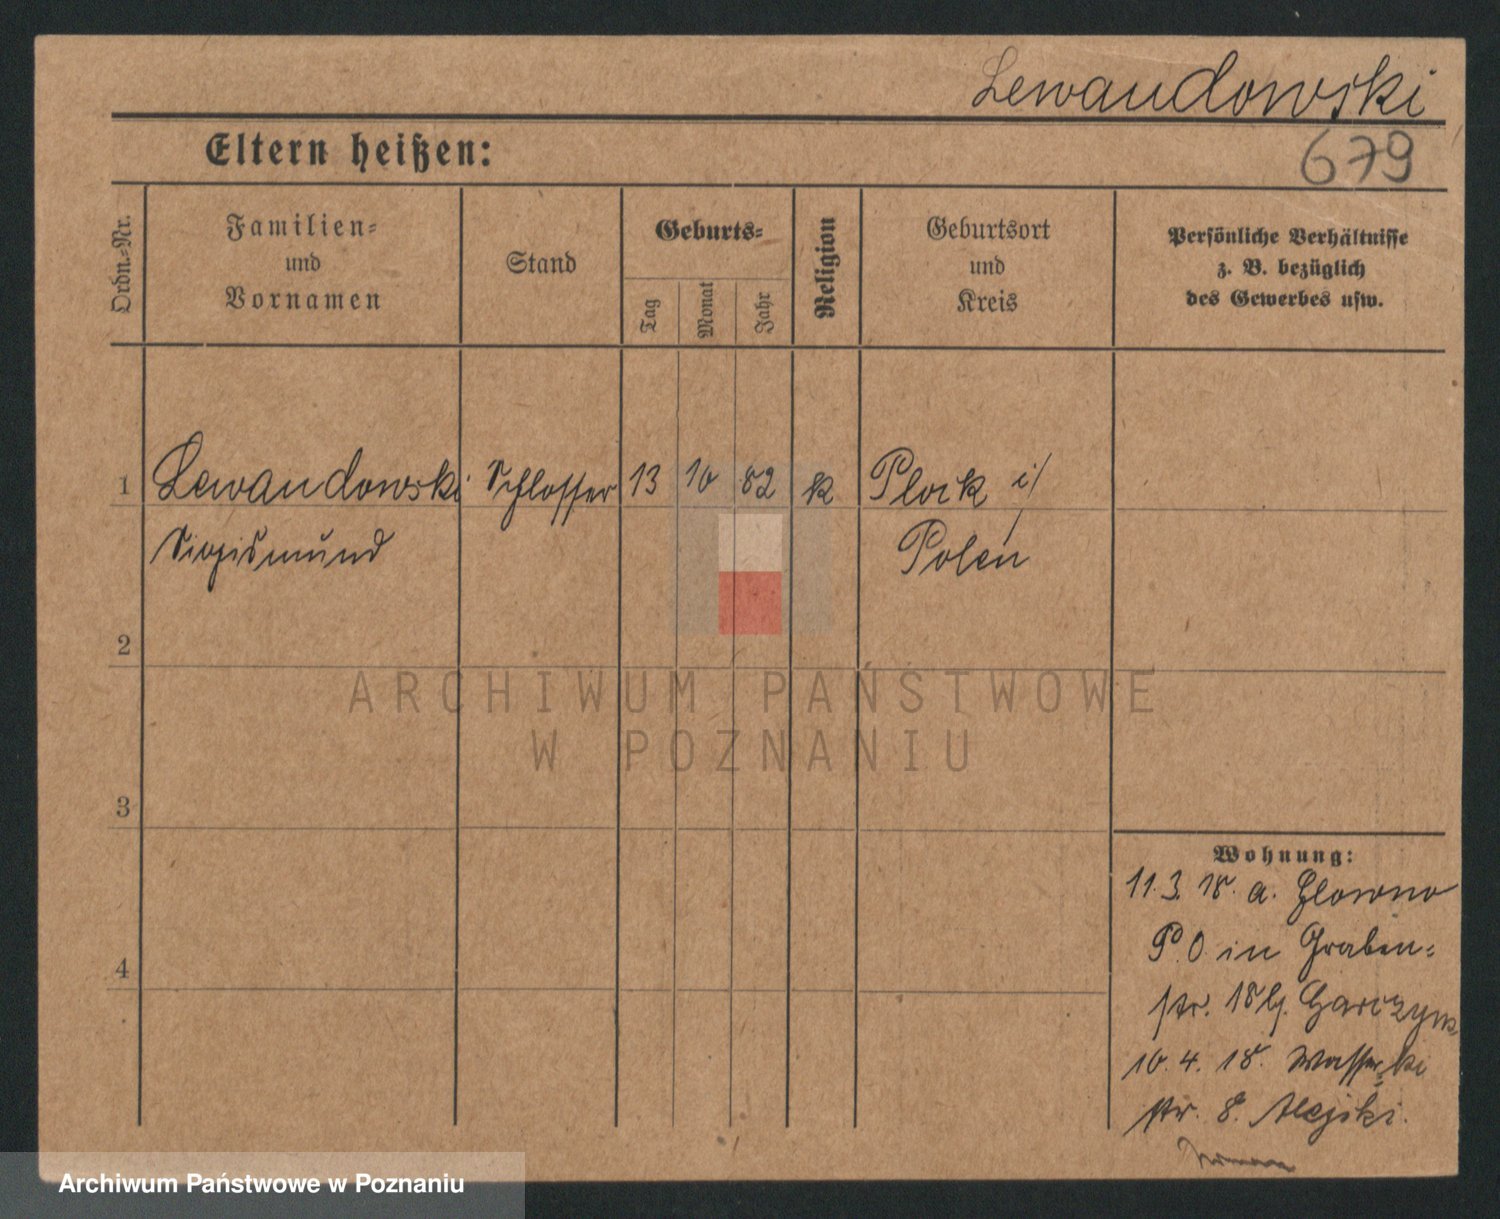 Lewandowski
679
Eltern heißen:
Ordn.-Nr.
Familien-
und
Vornamen
Stand
Geburts-
Tag
Monat
Jahr
Religion
Geburtsort
und
Kreis
Persönliche Verhältnisse
z. B. bezüglich
des Gewerbes usw.
1 Lewandowski Schlosser 13 10 82 k Plock i/
Sigismund Polen
2
3
4
ARCHIWUM PAŃSTWOWE
W POZNANIU
Wohnung:
11. 3. 18. a. Glowno
P. O in Graben-
str. 18 bj. Garczynski
10. 4. 18. Wasser-
str. 8.
Archiwum Państwowe w Poznaniu